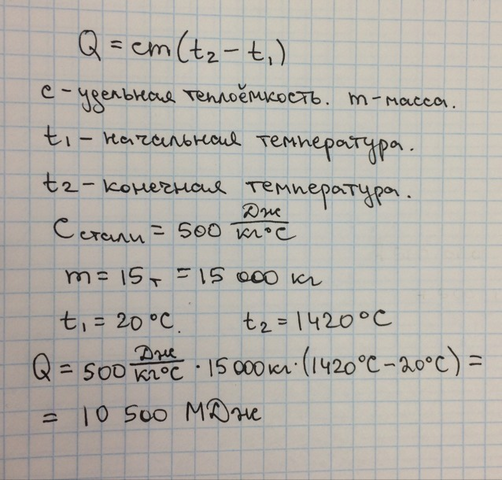 Q = cm(t₂ - t₁)
c - удельная теплоёмкость. m - масса.
t₁ - начальная температура.
t₂ - конечная температура.
Cстали = 500 Дж/кг°С
m = 15т = 15 000 кг
t₁ = 20°С. t₂ = 1420°С
Q = 500 Дж/кг°С · 15000кг · (1420°С - 20°С) =
= 10 500 МДж